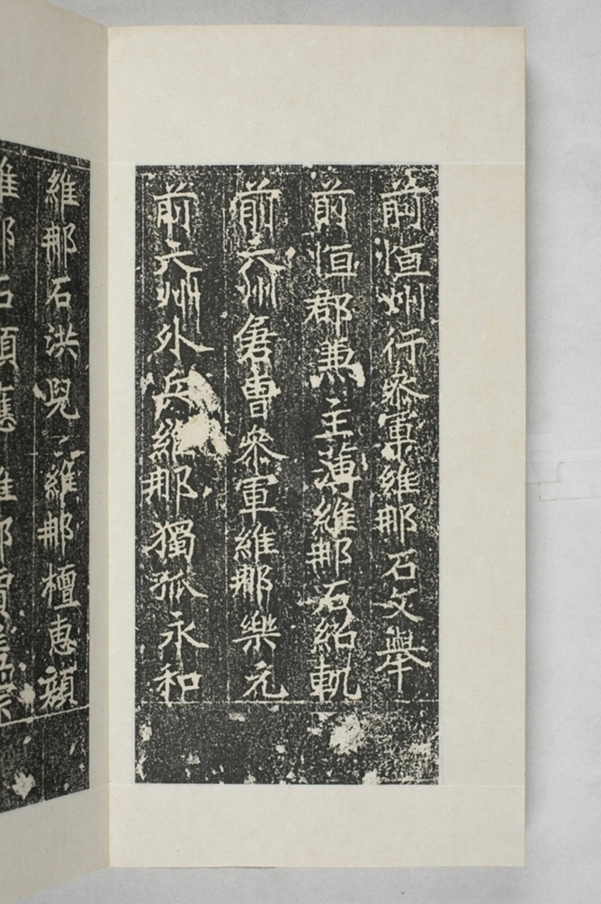 前恒州行叅軍維那石文舉
前恒郡兼主薄維那石紹軌
前六州倉曹叅軍維那樂元
前六州外兵維那獨孤永和
維那石洪兒二維那檀惠顏
維那石顯應維那賈